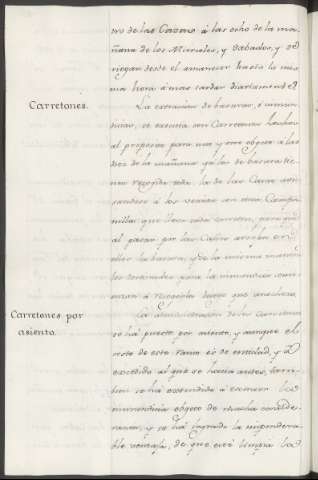 ros de las Casas á las ocho de la ma-
ñana de los Miercoles, y Sabados, y se
riegan desde el amanecer hasta la mis-
ma hora á mas tardar diariamente.
Carretones.
La extraccion de basuras, é inmun-
dicias, se executa con Carretones hechos
al proposito para uno y otro objeto á las
diez de la mañana ya las de basura tie-
nen recogida toda la de las Casas avi-
sandose á los vecinos con una Campa-
nilla que lleva cada carreton, para que
al pasar por las Calles arrojen en
ellos la basura, y de la misma manera
los destinados para la inmundicia comi-
enzan á recogerla luego que anochece.
Carretones por
asiento.
La administracion de los Carretones
se ha puesto por asiento, y aunque el
costo de este Ramo es de entidad, y ha
excedido al que se hacia antes, tam-
bien se ha extendido á extraer las
inmundicias objeto de mucha conside-
racion, y se ha logrado la impondera-
ble ventaja, de que esté limpia la